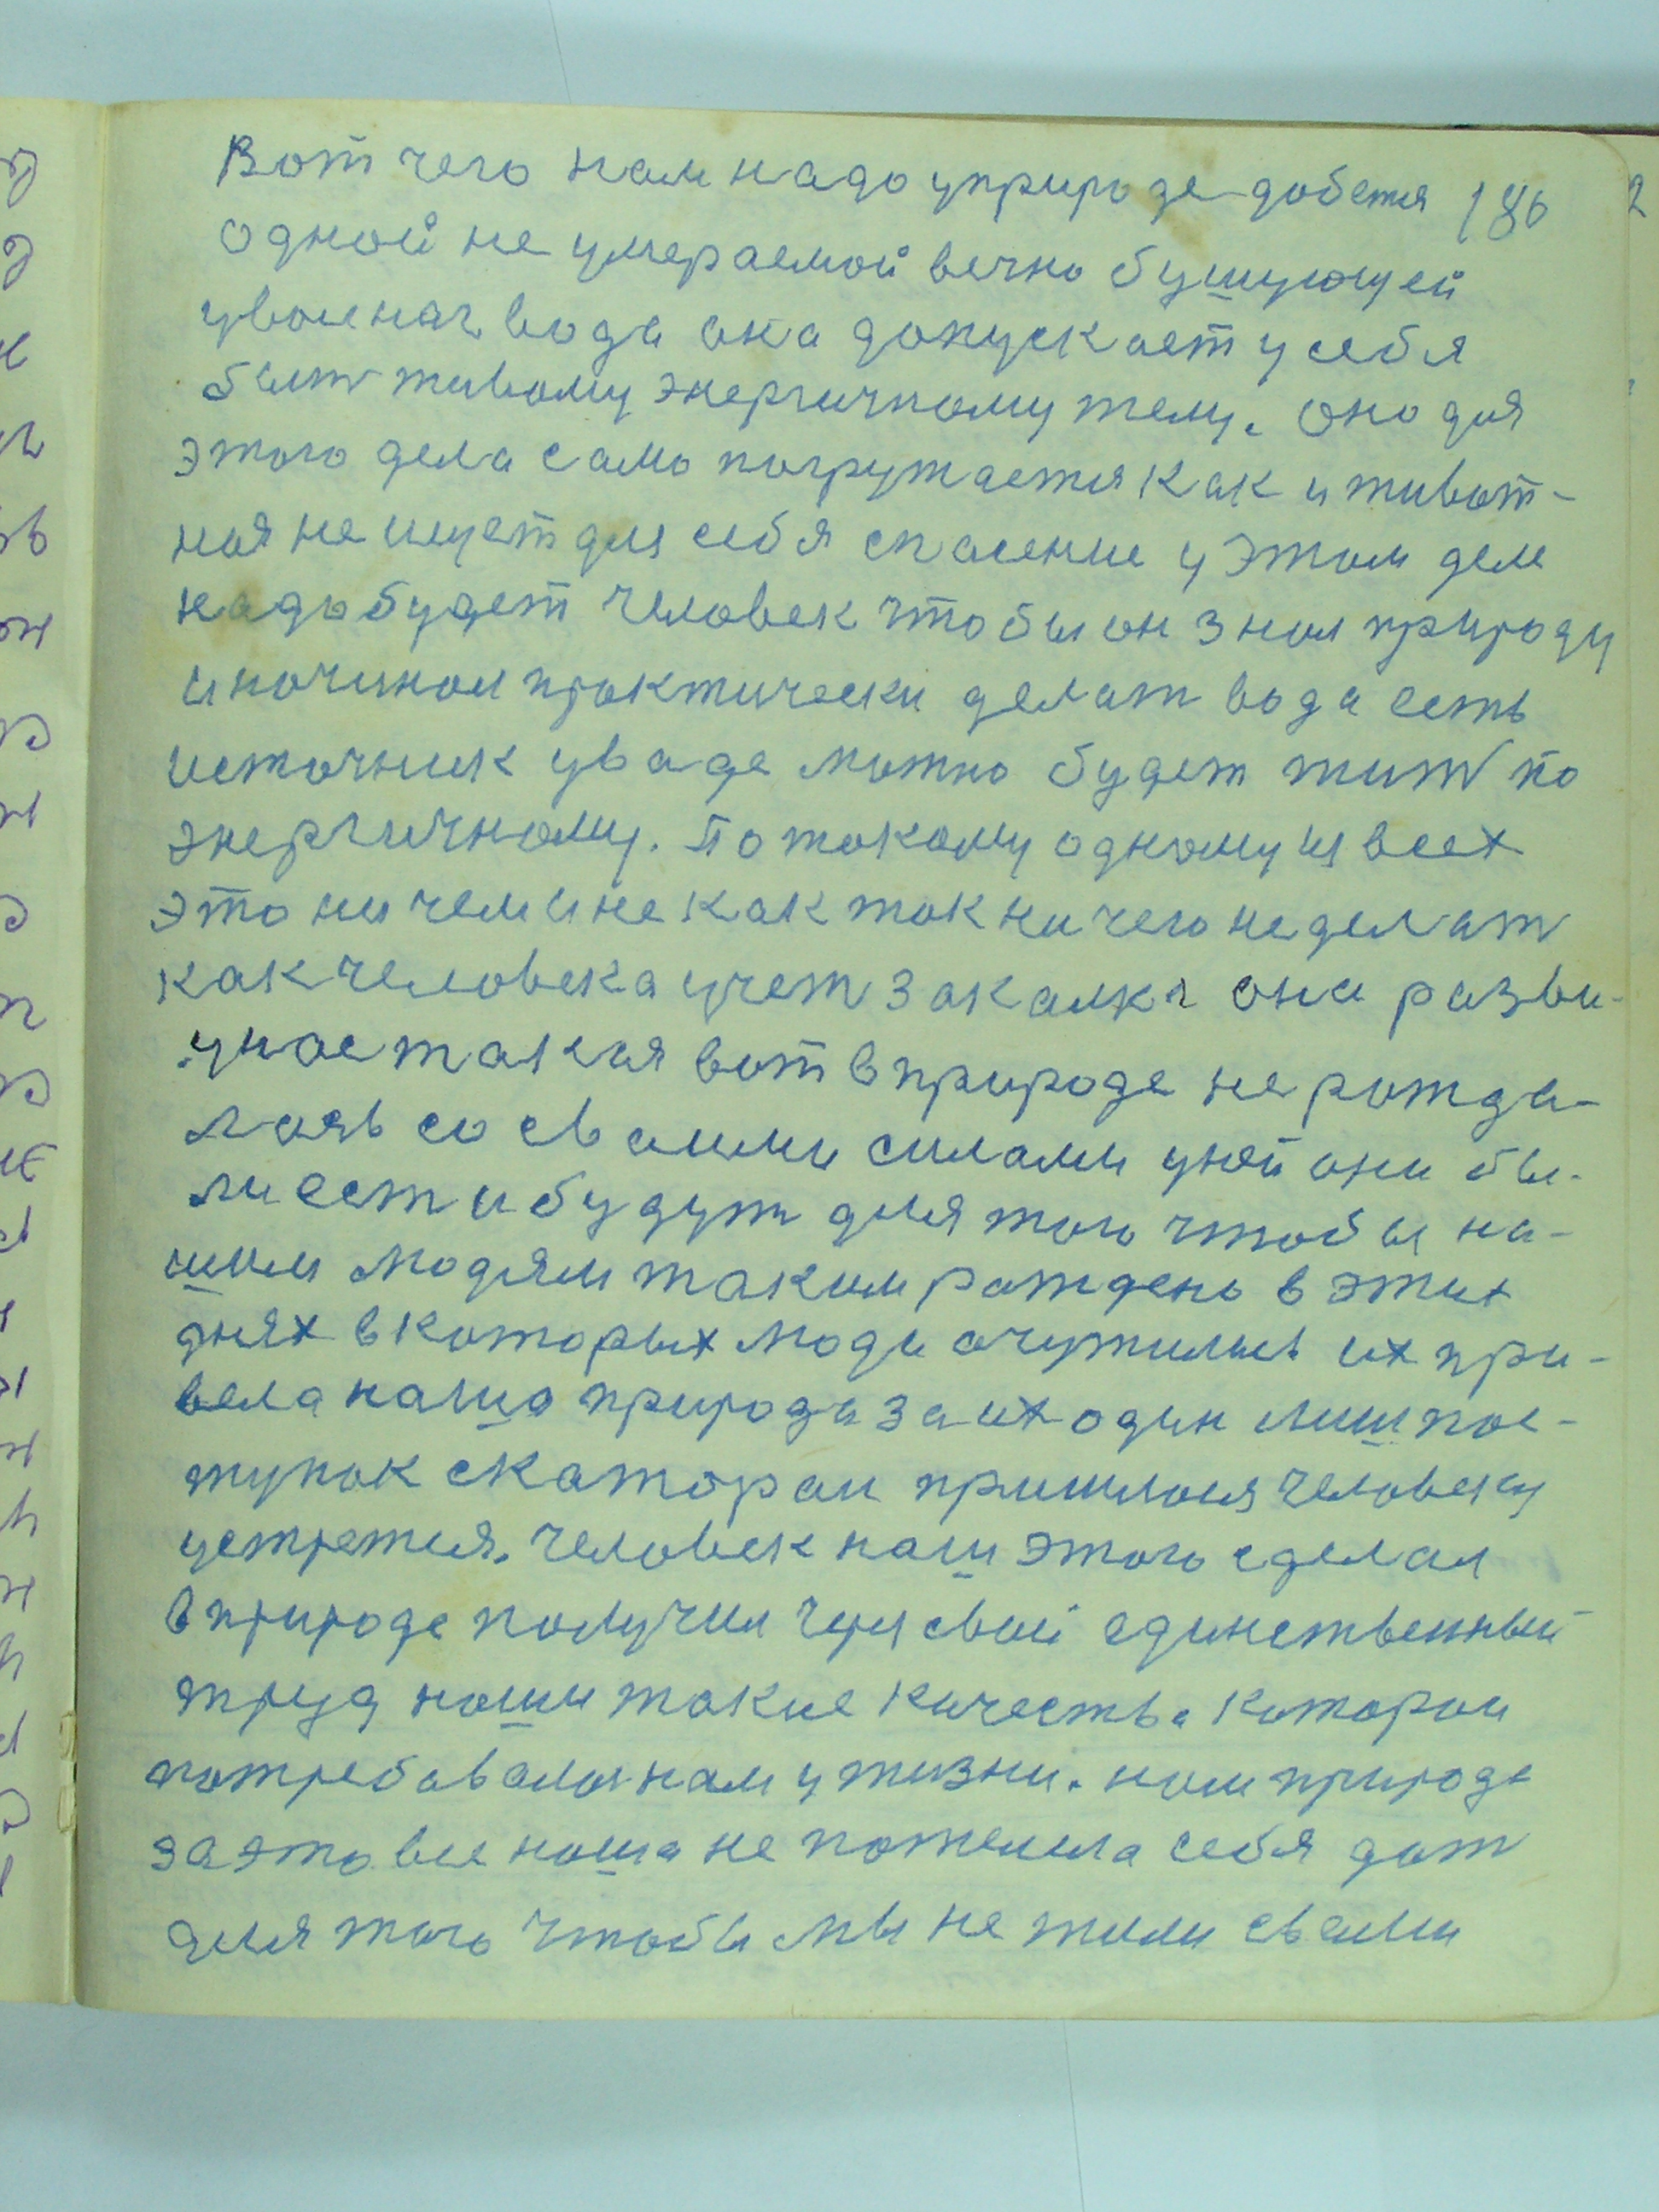 Вот чего нам надо уприроде добется 186
одной не умераемой вечно бушующей
уволнах вода она допускает усебя
быть живому энергичному телу. оно для
этого дела само погружается как и живот-
ноя не ищет для себя спасение у этом деле
надо будет человек чтобы он знал природу
и начинал практически делат вода есть
источник уваде можно будет жить по
энергичному. По такому одному из всех
это ни чем и не как так ни чего не делат
как человека учет закалка она разви
унас такая вот в природе не рожда-
лась со своими силами уней они бы-
ли ест и будут для того чтобы на-
шим людям таким рождено в этих
днях в которых люди очутились их при-
вела наша природа за их один лиш пос-
тупок скаторым пришлося человеку
устретися. Человек наш этого сделал
в природе получил через свой единственный
труд наши такие качества которои
потребавалось нам ужизни. нам природа
за это все наша не пожелела себя дат
для того чтобы мы не жили своими